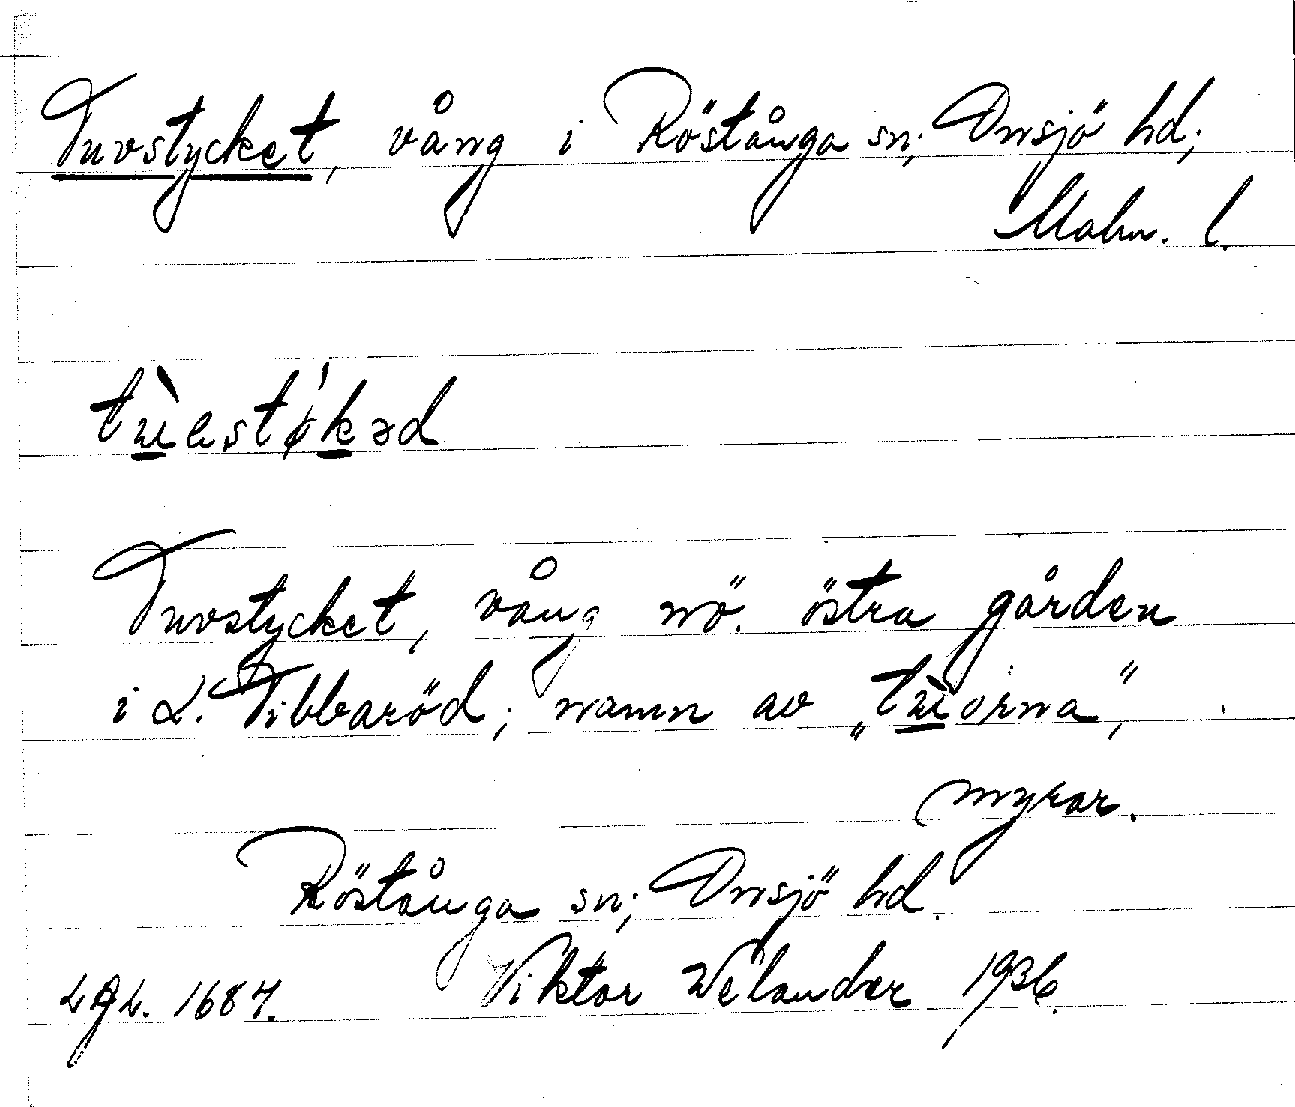 Tuvstycket, vång i Röstånga sn; Onsjö hd;
Malm. l.
tùestǿkəd
Tuvstycket, vång nö. östra gården
i L. Tibbaröd; namn av „tùorna",
myrar.
Röstånga sn; Onsjö hd.
Viktor Welander 1936.
LGL. 1687.